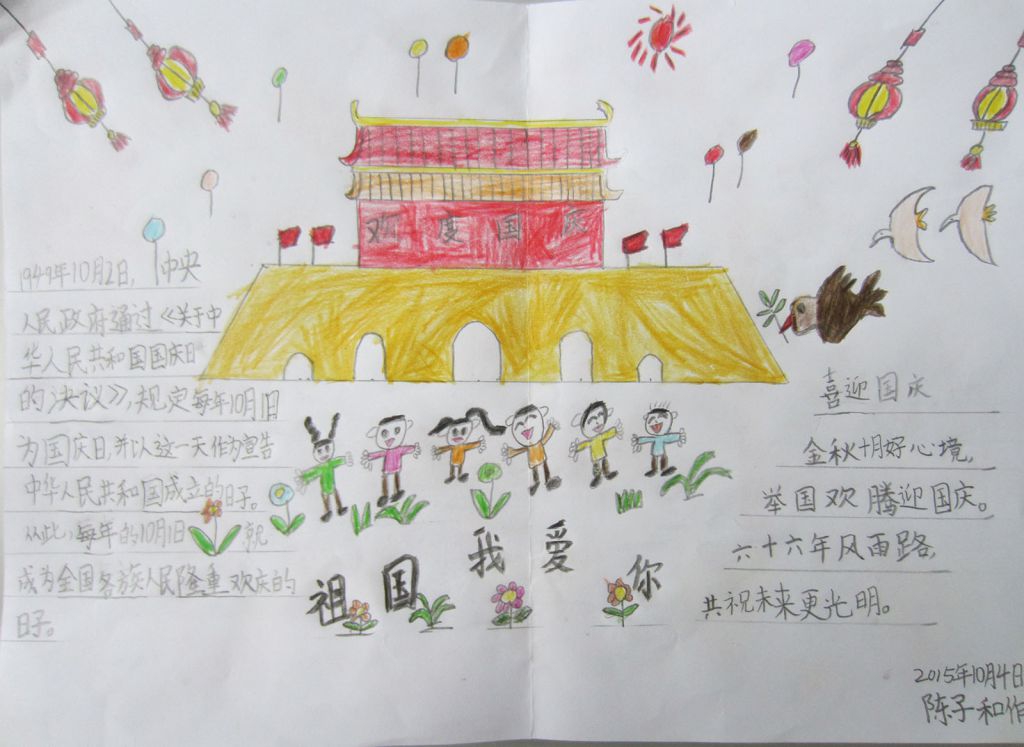 欢度国庆
1949年10月2日，中央
人民政府通过《关于中
华人民共和国国庆日
的决议》，规定每年10月1日
为国庆日，并以这一天作为宣告
中华人民共和国成立的日子。
从此，每年的10月1日就
成为全国各族人民隆重欢庆的
日子。
祖国我爱你
喜迎国庆
金秋十月好心境，
举国欢腾迎国庆。
六十六年风雨路，
共祝未来更光明。
2015年10月4日
陈子和作